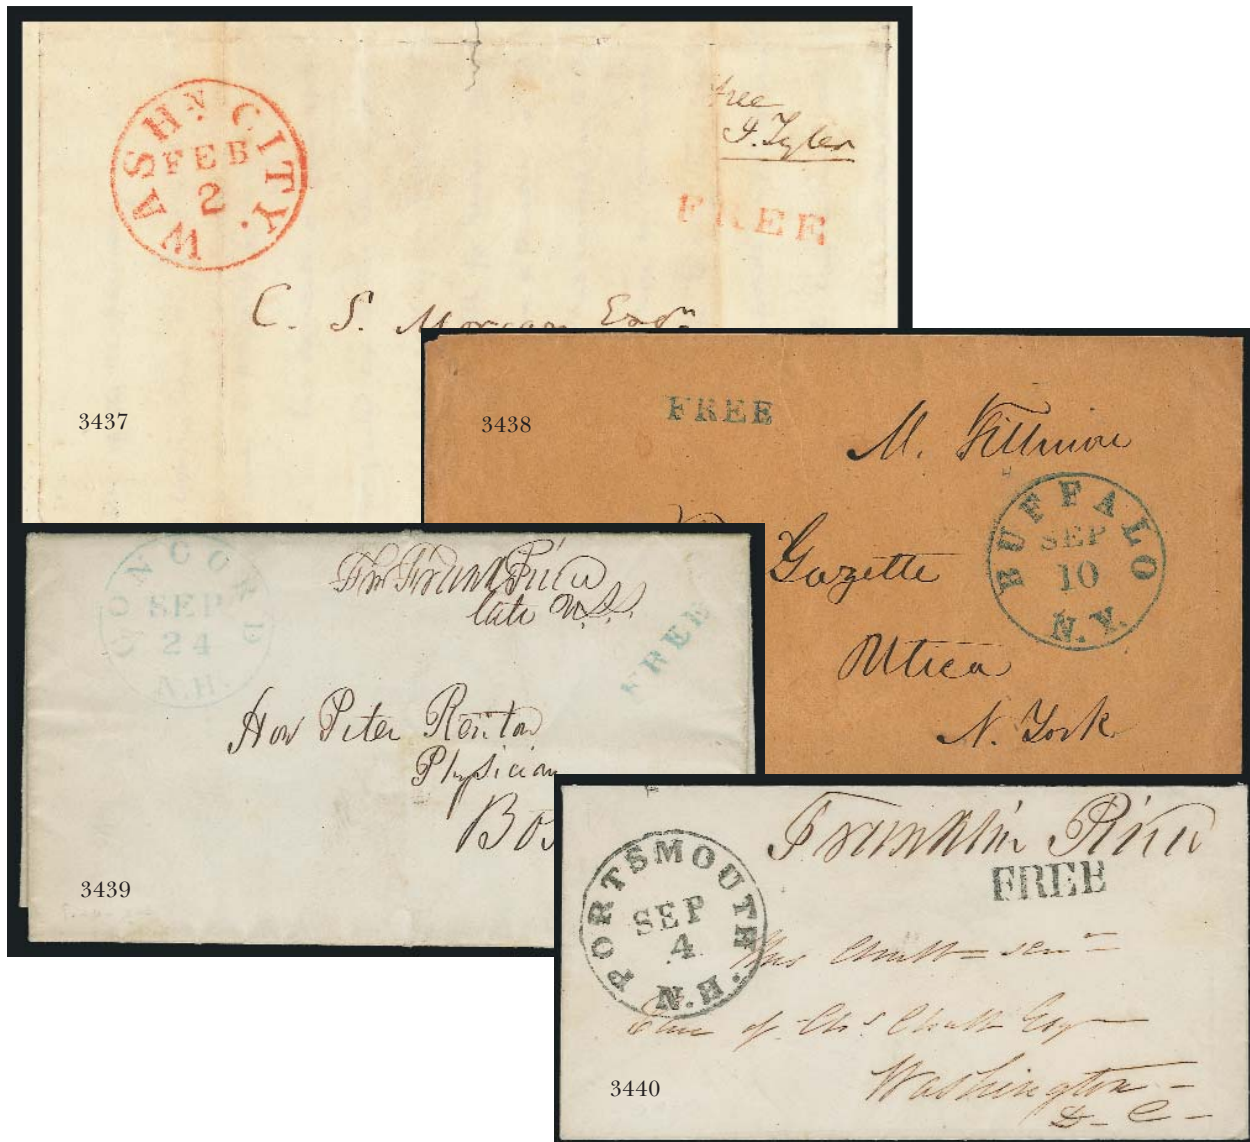 WASHN. CITY.
FEB
2
free
J. Tyler
FREE
C. S. Morgan Esqr.
3437
3438
FREE
M. Fillmore
BUFFALO
SEP
10
N.Y.
Gazette
Utica
N. York
CONCORD
SEP
24
N.H.
Fr Frank Pierce
late U.S.S.
FREE
Hon Peter Renton
Physician
Bos
3439
Franklin Pierce
FREE
PORTSMOUTH
SEP
4
N.H.
Mrs
Care of Chs. Esqr
Washington
D. C.
3440